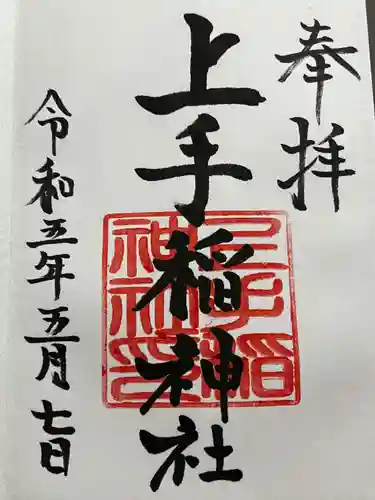 奉拝
上手稲神社
令和五年五月七日
上手稲
神社印